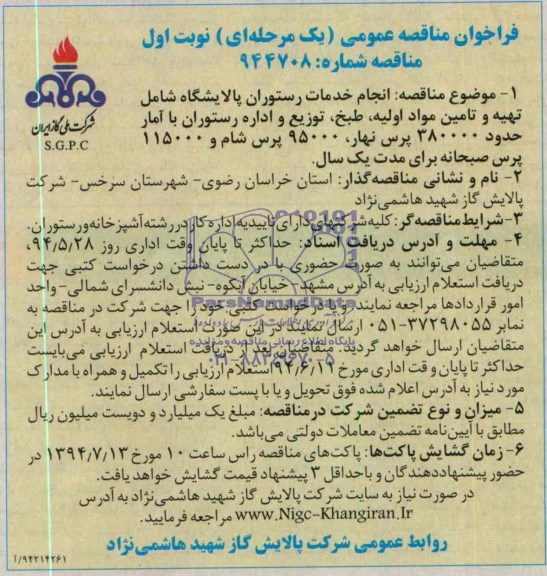 فراخوان مناقصه عمومی (یک مرحله‌ای) نوبت اول
مناقصه شماره: ۹۴۴۷۰۸
شرکت ملی گاز ایران
S.G.P.C
۱- موضوع مناقصه: انجام خدمات رستوران پالایشگاه شامل
تهیه و تامین مواد اولیه، طبخ، توزیع و اداره رستوران با آمار
حدود ۳۸۰۰۰۰ پرس نهار، ۹۵۰۰۰ پرس شام و ۱۱۵۰۰۰
پرس صبحانه برای مدت یک سال.
۲- نام و نشانی مناقصه‌گذار: استان خراسان رضوی- شهرستان سرخس- شرکت
پالایش گاز شهید هاشمی‌نژاد
۳-شرایط مناقصه‌گر: کلیه شرکتهای دارای تاییدیه اداره کار در رشته آشپزخانه و رستوران.
۴- مهلت و آدرس دریافت اسناد: حداکثر تا پایان وقت اداری روز ۹۴/۵/۲۸،
متقاضیان می‌توانند به صورت حضوری با در دست داشتن درخواست کتبی جهت
دریافت استعلام ارزیابی به آدرس مشهد- خیابان آبکوه- نبش دانشسرای شمالی- واحد
امور قراردادها مراجعه نمایند و یا درخواست کتبی خود را جهت شرکت در مناقصه به
نمابر ۳۷۲۹۸۰۵۵-۰۵۱ ارسال نمایند در این صورت استعلام ارزیابی به آدرس این
متقاضیان ارسال خواهد گردید. متقاضیان بعد از دریافت استعلام ارزیابی می‌بایست
حداکثر تا پایان وقت اداری مورخ ۹۴/۶/۱۹ استعلام ارزیابی را تکمیل و همراه با مدارک
مورد نیاز به آدرس اعلام شده فوق تحویل و یا با پست سفارشی ارسال نمایند.
۵- میزان و نوع تضمین شرکت در مناقصه: مبلغ یک میلیارد و دویست میلیون ریال
مطابق با آیین‌نامه تضمین معاملات دولتی می‌باشد.
۶- زمان گشایش پاکت‌ها: پاکت‌های مناقصه راس ساعت ۱۰ مورخ ۱۳۹۴/۷/۱۳ در
حضور پیشنهاددهندگان و باحداقل ۳ پیشنهاد قیمت گشایش خواهد یافت.
در صورت نیاز به سایت شرکت پالایش گاز شهید هاشمی‌نژاد به آدرس
www.Nigc-Khangiran.Ir مراجعه فرمایید.
روابط عمومی شرکت پالایش گاز شهید هاشمی‌نژاد
۹۴۲۱۴۲۶۱/آ
ParsNamadData
پایگاه اطلاع رسانی مناقصه و مزایده